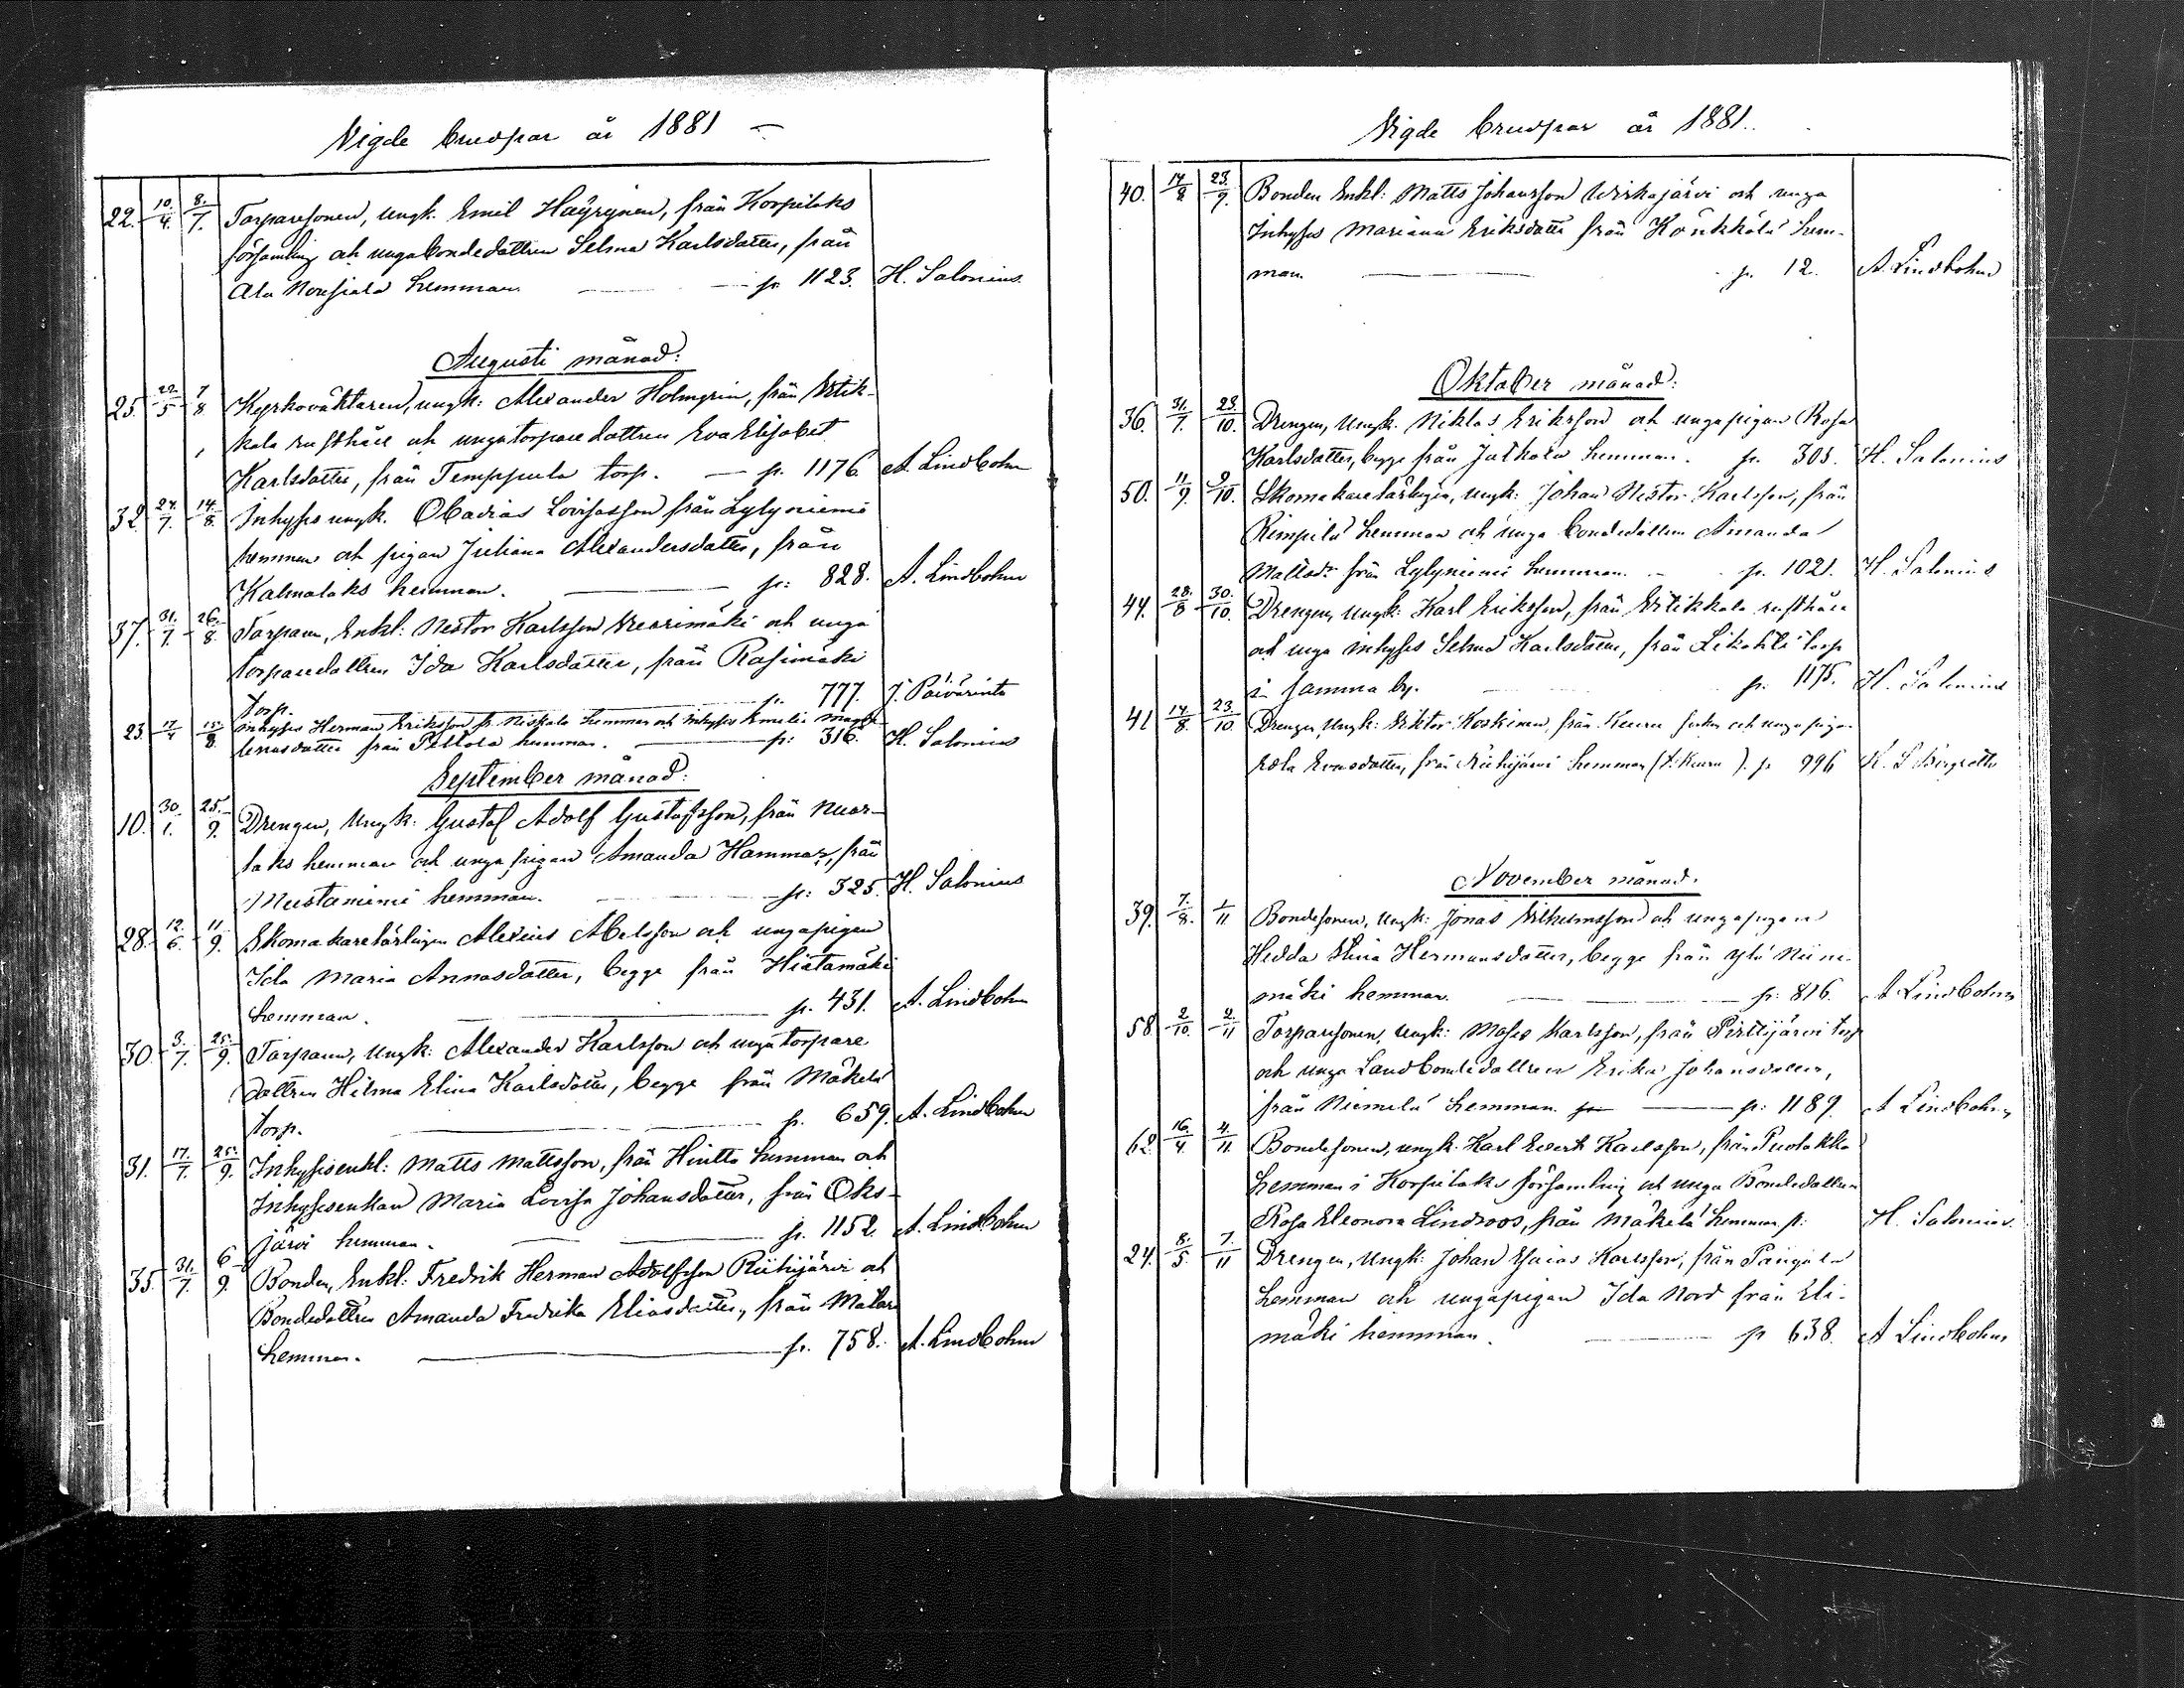 Vigde brudpar år 1881
22. 10/4. 8/7. Torparesonen, ungk. Emil Häyrynen, från Korpilaks
församling och unga bondedottren Selma Karlsdotter, från
Ala hemman p. 1123. H. Salonius
Augusti månad:
25. 29/5 7/8 Kyrkoväktaren, ungk: Alexander Holmgrin, från
kala rusthåll och unga torparedottren Eva Elisabet
Karlsdotter, från Temppula torp. p. 1176. A. Lindbohm
32. 24/7. 14/8. Inhyses ungk. Obadias Lovisasson från Lylyniemi
hemman och pigan Juliana Alexandersdotter, från
Kalmalaks hemman. p: 828. A. Lindbohm
37. 31/7. 26/8. Torparen, Enkl: Nestor Karlsson Weärimäki och unga
torparedottren Ida Karlsdotter, från Rasimäki
torp. p. 777. J. Päivärinta
23. 17/4 15/8. Inhyses Herman Eriksson fr. Niskala hemman och Inhyses Emelie Magda
lenasdotter från Peltola hemman. p: 316. H. Salonius
September månad:
10. 30/1. 25/9. Drengen, Ungk: Gustaf Adolf Gustafsson, från Nuor-
laks hemman och unga pigan Amanda Hammar, från
Mustaniemi hemman. p: 325. H. Salonius
28. 12/6. 11/9. Skomakarelärlingen Alexius Abelsson och unga pigan
Ida Maria Annasdotter, begge från Hietamäki
hemman. p. 431. A. Lindbohm
30. 3/7. 25/9. Torparen, Ungk: Alexander Karlsson och unga torpare
dottren Hilma Elina Karlsdotter, begge från Mäkelä
torp. p. 659. A. Lindbohm
31. 17/7. 25/9. Inhysesenkl: Matts Mattsson, från Hintta hemman och
Inhysesenkan Maria Lovisa Johansdotter, från Oks-
järvi hemman. p. 1152. A. Lindbohm
35. 31/7. 6/9. Bonden, Enkl: Fredrik Herman Adolfsson Riihijärvi och
Bondedottren Amanda Fredrika Eliasdotter, från
hemman. p. 758. A. Lindbohm
Vigde brudpar år 1881.
40. 14/8 23/9. Bonden Enkl: Matts Johansson Wirkajärvi och unga
Inhyses Mariana Eriksdotter från Könkkölä hem-
man. p. 12. A. Lindbohm
Oktober månad:
36. 31/7. 23/10. Drengen, Ungk. Niklas Eriksson och unga pigan Rosa
Karlsdotter, begge från Jatkola hemman. p. 305. H. Salonius
50. 11/9. 9/10. Skomakarelärlingen, ungk: Johan Nestor Karlsson, från
Rimpilä hemman och unga bondedottren Amanda
Mattsdr från Lylyniemi hemman. p. 1021. H. Salonius
44. 28/8 30/10. Drengen, Ungk: Karl Eriksson, från rusthåll
och unga inhyses Selma Karlsdotter, från torp
i samma by. p. 1175. H. Salonius
41 14/8. 23/10. Drengen Ungk: Viktor Koskinen, från Keuru och unga pigan
Edla Evasdotter, från Riihijärvi hemman (t. Keuru). p. 996 K. S.
November månad.
39. 7/8. 1/11 Bondesonen, Ungk: Jonas Wilhelmsson och unga pigan
Hedda Stina Hermansdotter, begge från Ylä Niini-
mäki hemman. p: 816. A Lindbohm
58 2/10. 2/11 Torparesonen, Ungk: Moses Karlsson, från Pirttijärvi torp
och unga Landbondedottren Erika Johansdotter,
från Niemelä hemman. p: 1189. A Lindbohm
62. 16/4. 4/11. Bondesonen, ungk. Karl Evert Karlsson, från Puolakka
hemman i Korpilaks församling och unga Bondedottren
Rosa Eleonora Lindroos, från Mäkelä hemman p: H. Salonius
24. 8/5. 7/11 Drengen, Ungk: Johan Esaias Karlsson, från
hemman och unga pigan Ida Nord från Eli-
mäki hemman. p 638. A Lindbohm